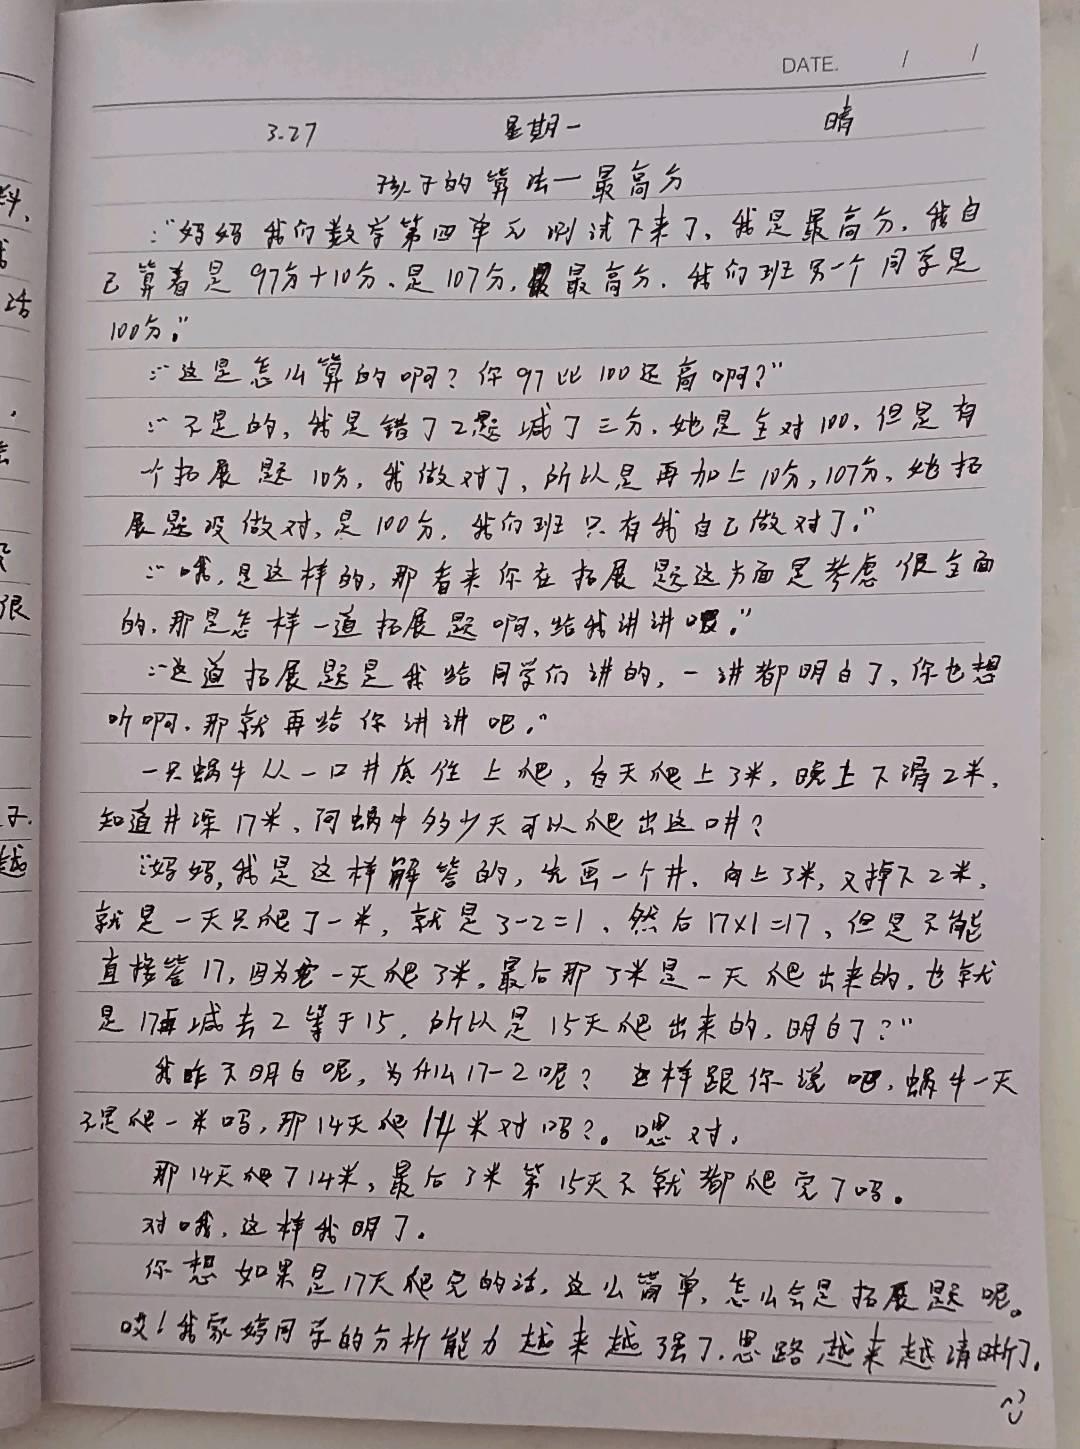 DATE. / /
3.27 星期一 晴
孩子的算法—最高分
:“妈妈我们数学第四单元测试下来了、我是最高分,我自
己算着是97分+10分、是107分,最高分.我们班另一个同学是
100分。”
:“这是怎么算的啊?你97比100还高啊?”
:“不是的,我是错了2题减了三分.她是全对100,但是有
个拓展题10分,我做对了、所以是再加上10分,107分,她拓
展题没做对,是100分,我们班只有我自己做对了。”
:“哦,是这样的,那看来你在拓展题这方面是考虑很全面
的.那是怎样一道拓展题啊、给我讲讲。”
:“这道拓展题是我给同学们讲的,一讲都明白了、你也想
听啊.那就再给你讲讲吧。”
一只蜗牛从一口井底往上爬,白天爬上3米,晚上下滑2米,
知道井深17米、问蜗牛多少天可以爬出这口井?
:“妈妈,我是这样解答的,先画一个井、向上3米,又掉下2米,
就是一天只爬了一米,就是3-2=1、然后17×1=17,但是不能
直接答17,因为它一天爬3米。最后那3米是一天爬出来的.也就
是17再减去2等于15,所以是15天爬出来的,明白了?”
我咋不明白呢,为什么17-2呢?这样跟你说吧,蜗牛一天
不是爬一米吗,那14天爬14米对吗?。嗯对,
那14天爬了14米,最后3米第15天不就都爬完了吗。
对哦,这样我明了。
你想如果是17天爬完的话,这么简单,怎么会是拓展题呢。
哎!我家婷同学的分析能力越来越强了.思路越来越清晰了.
料、
我
话
,
很
子.
越